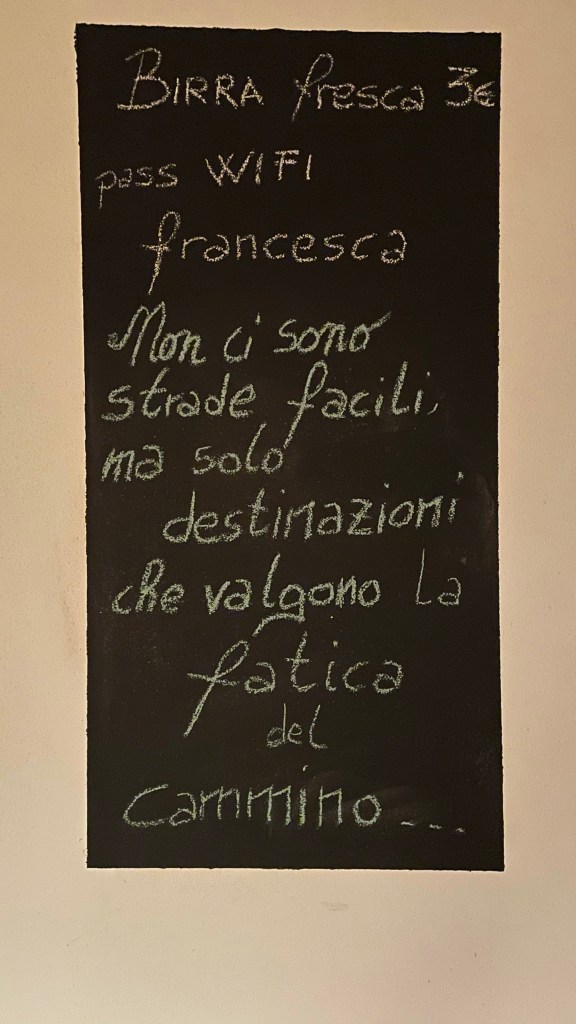 BIRRA fresca 3€
pass WIFI
francesca
Non ci sono
strade facili,
ma solo
destinazioni
che valgono la
fatica
del
cammino...